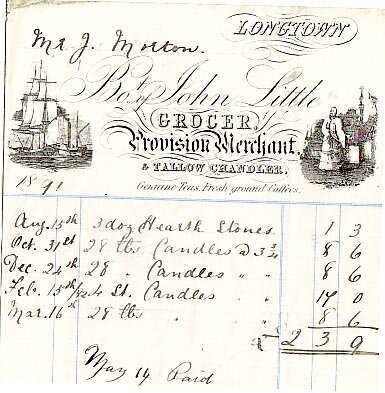 LONGTOWN
Mr. J. Morton.
Bot. of John Little
GROCER,
Provision Merchant,
& TALLOW CHANDLER.
Genuine Teas, Fresh ground Coffees.
1891
Aug. 15th 3 doz Hearth Stones 1 3
Oct. 31st 28 lbs. Candles @ 3 3/4 8 6
Dec. 24th 28 " Candles " " 8 6
Feb. 15th/92 4 St. Candles " " 17 0
Mar. 16th 28 lbs " " 8 6
£ 2 3 9
May 14 Paid